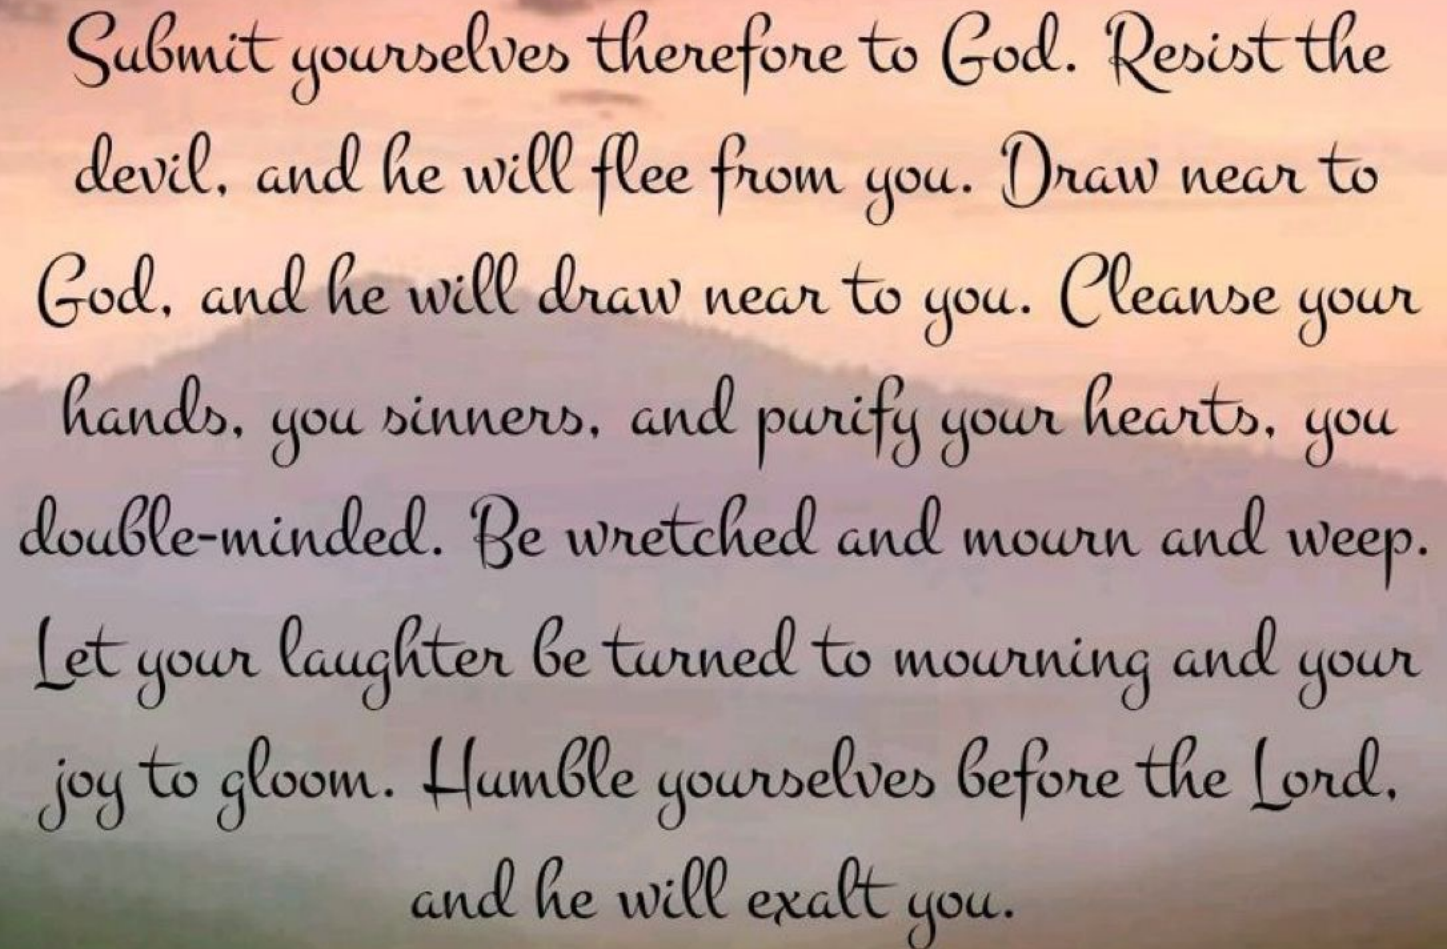 Submit yourselves therefore to God. Resist the
devil, and he will flee from you. Draw near to
God, and he will draw near to you. Cleanse your
hands, you sinners, and purify your hearts, you
double-minded. Be wretched and mourn and weep.
Let your laughter be turned to mourning and your
joy to gloom. Humble yourselves before the Lord,
and he will exalt you.